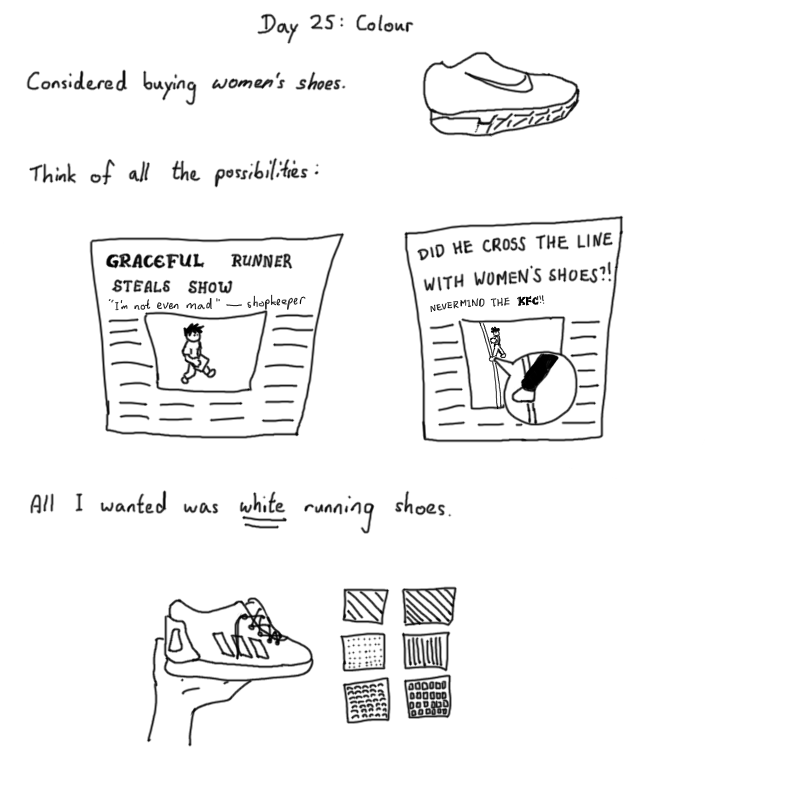 Day 25: Colour
Considered buying women's shoes.
Think of all the possibilities:
GRACEFUL RUNNER
STEALS SHOW
"I'm not even mad" — shopkeeper
DID HE CROSS THE LINE
WITH WOMEN'S SHOES?!
NEVERMIND THE KFC!!
All I wanted was white running shoes.